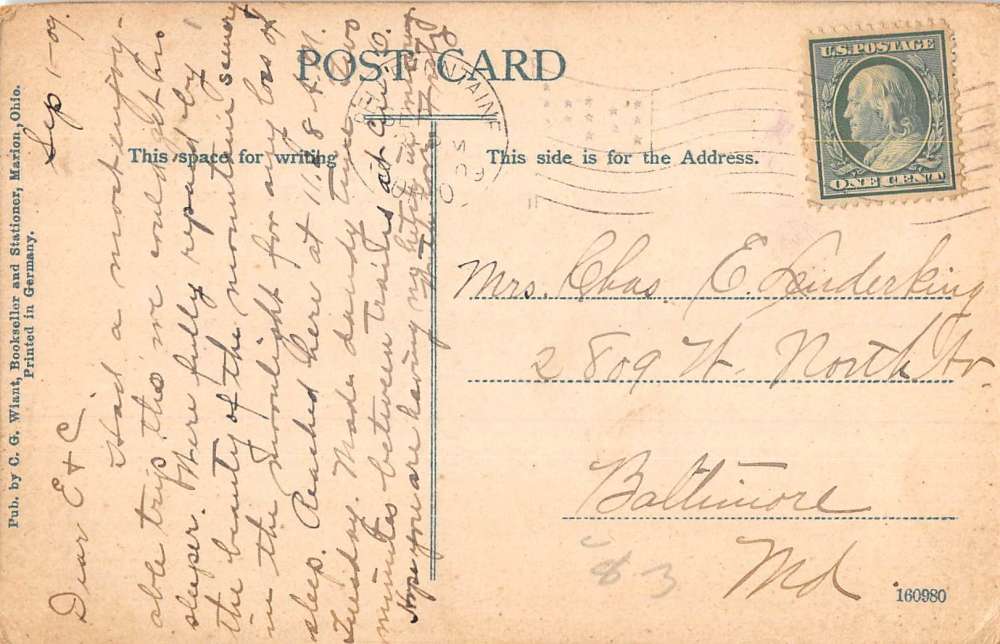 POST CARD
This space for writing
This side is for the Address.
U.S. POSTAGE
ONE CENT
Pub. by C. G. Wiant, Bookseller and Stationer, Marion, Ohio.
Printed in Germany.
Sep 1-09.
Dear E + C.
Had a most enjoy-
able trip tho' we could get no
sleeper. Were fully repaid by
the beauty of the mountain scenery
in the moonlight for any loss of
sleep. Reached here at 11.18 A.M.
Tuesday. Made dandy time. two
minutes between trains at Cin. O.
Hope you are having
Mrs. Chas. E. Linderking
2809 W. North Av.
Baltimore
Md
83
160980